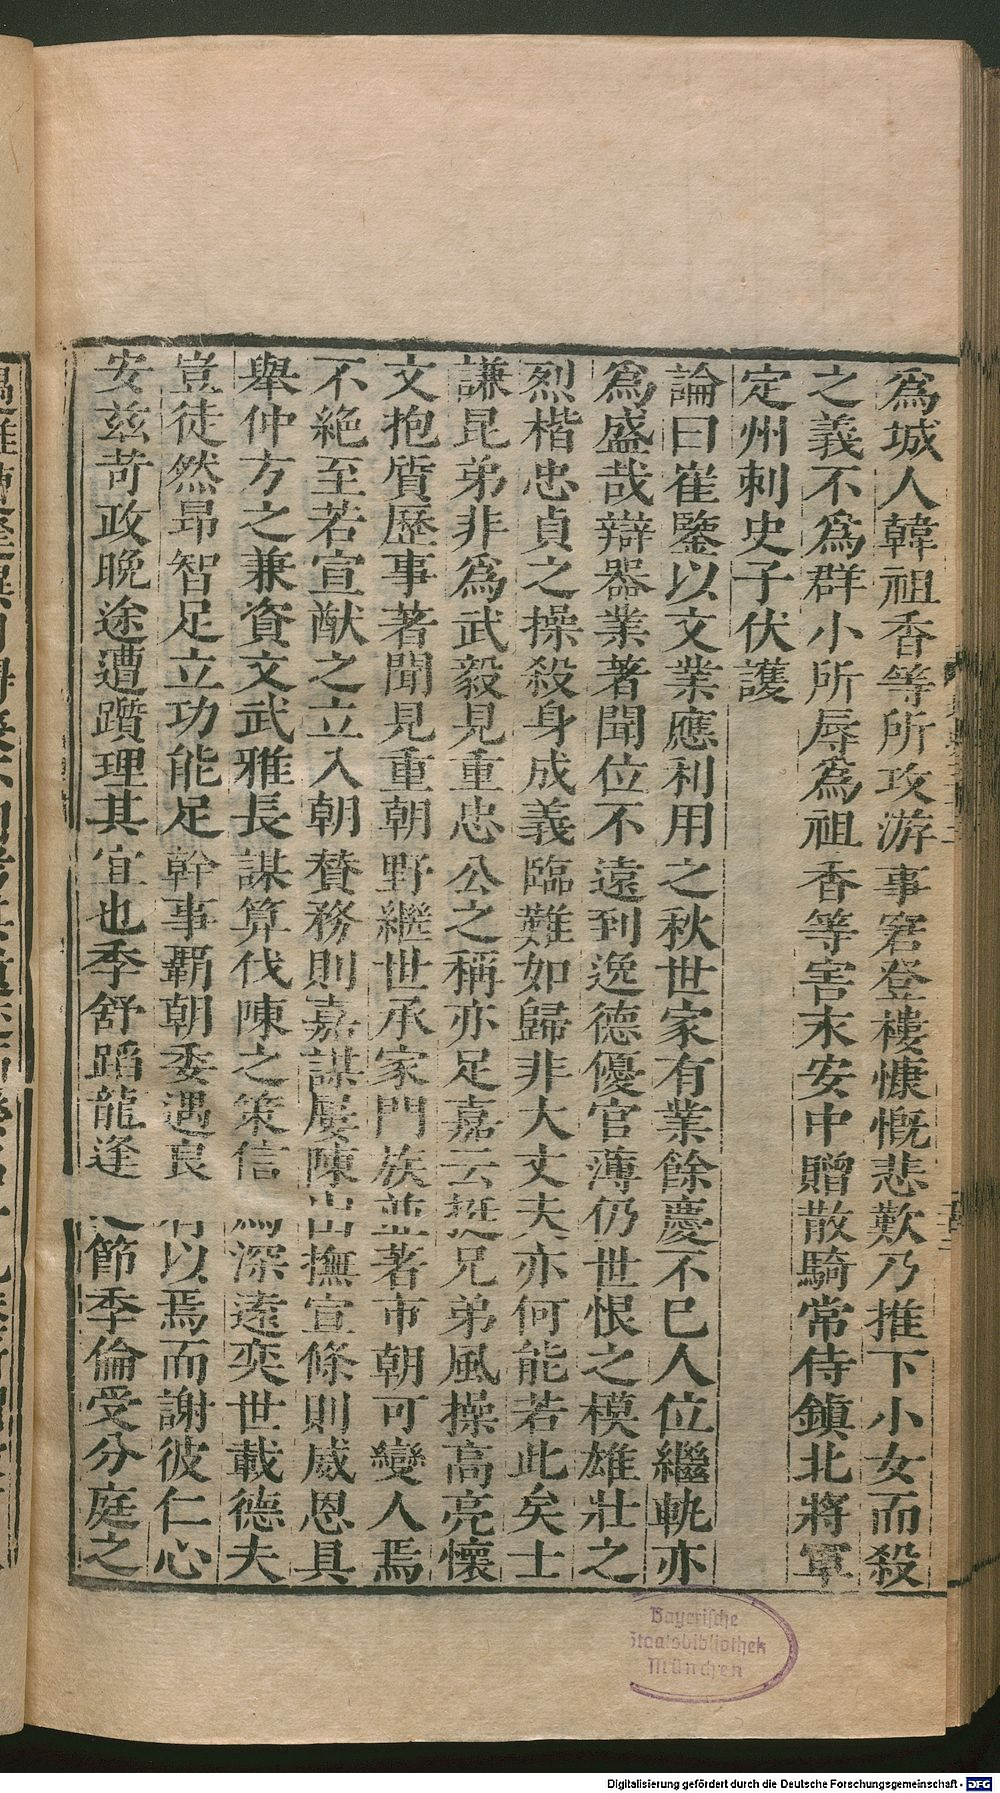 爲城人韓祖香等所攻游事窘登樓慷慨悲歎乃推下小女而殺
之義不爲群小所辱爲祖香等害末安中贈散騎常侍鎮北將軍
定州刺史子伏護
論曰崔鑒以文業應利用之秋世家有業餘慶不已人位繼軌亦
爲盛哉辯器業著聞位不遠到逸德優官薄仍世恨之模雄壯之
烈楷忠貞之操殺身成義臨難如歸非大丈夫亦何能若此矣士
謙昆弟非爲武毅見重忠公之稱亦足嘉云挺兄弟風操高亮懷
文抱質歷事著聞見重朝野繼世承家門族並著市朝可變人焉
不絶至若宣猷之立入朝贊務則嘉謀屢陳出撫宣條則威恩具
舉仲方之兼資文武雅長謀算伐陳之策信爲深遠奕世載德夫
豈徒然昂智足立功能足幹事覇朝委遇良有以焉而謝彼仁心
安兹苛政晚途遭躓理其宜也季舒蹈龍逢之節季倫受分庭之
Bayerische
Staatsbibliothek
München
Digitalisierung gefördert durch die Deutsche Forschungsgemeinschaft - DFG